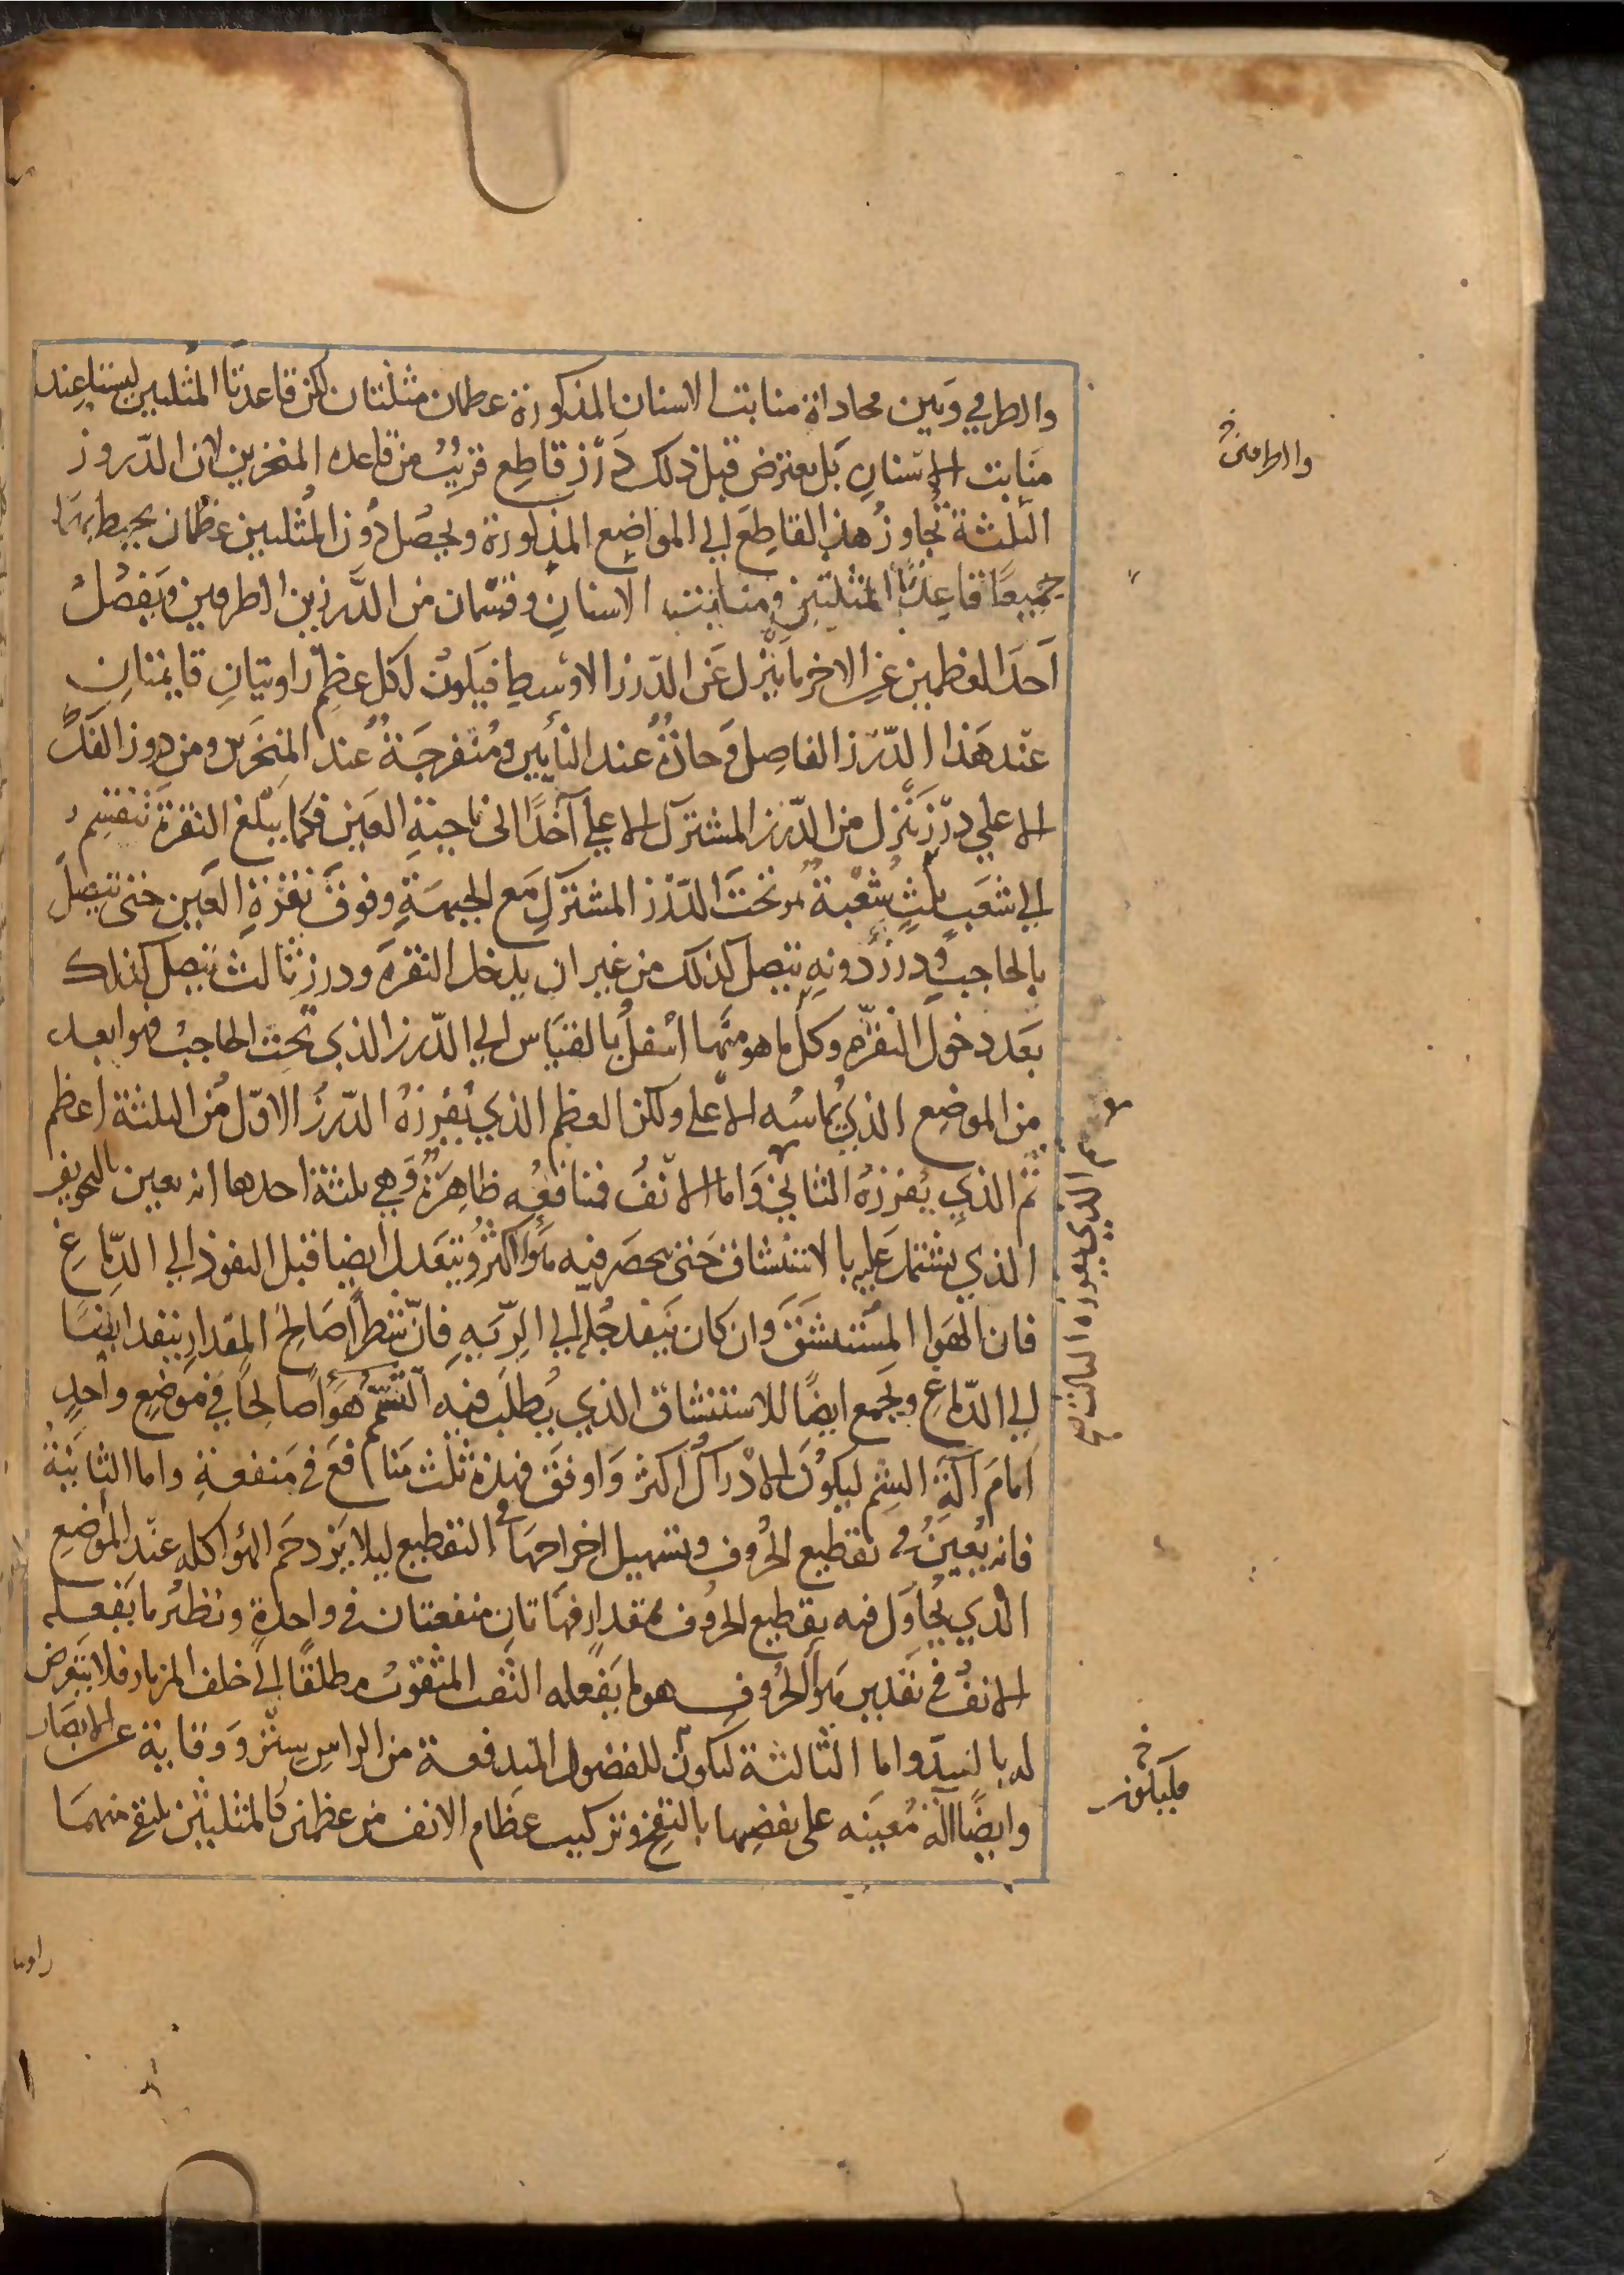 والطرفي وبين محاداة منابت الاسنان المذكورة عظمان مثلثتان لكن قاعدتا المثلثين ليستا عند
منابت الاسنان بل يعترض قبل ذلك درز قاطع قريب من قاعده المنخرين لان الدروز
الثلثة تجاوز هذا القاطع الي المواضع المذكورة ويحصل دون المثلثين عظمان يحيط بهما
جميعا قاعدتا المثلثتين ومنابت الاسنان وقسمان من الدرزين الطرفين ويفصل
احد العظمين عن الاخر ما ينزل عن الدرز الاوسط فيكون لكل عظم زاويتان قايمتان
عند هذا الدرز الفاصل وحادة عند النابين ومنفرجة عند المنخرين ومن دروز الفك
الاعلي درز ينزل من الدرز المشترك الاعلي آخذا الى ناحية العين فكما يبلغ النقرة تنقسم
الي شعب ثلث شعبة تمر تحت الدرز المشترك مع الجبهة وفوق نقرة العين حتى تتصل
بالحاجب ودرز دونه يتصل كذلك من غير ان يدخل النقرة ودرز ثالث يتصل كذلك
بعد دخول النقرة وكل ما هو منها اسفل بالقياس الي الدرز الذي تحت الحاجب فهو ابعد
من الموضع الذي يماسه الاعلى ولكن العظم الذي يفرزه الدرز الاول من الثلثة اعظم
ثم الذي يفرزه الثاني واما الانف فمنافعه ظاهرة وهي ثلثة احدها انه يعين بالتجويف
الذي يشتمل عليه بالاستنشاق حتى ينحصر فيه هوا اكثر ويتعدل ايضا قبل النفوذ الي الدماغ
فان الهوا المستنشق وان كان ينفد جله الي الريه فان شطرا صالح المقدار ينفد ايضا
الي الدماغ ويجمع ايضا للاستنشاق الذي يطلب فيه التشمم هوا صالحا في موضع واحد
امام آلة الشم ليكون الادراك اكثر واوفق فهذه ثلث منافع في منفعة واما الثانية
فانه يعين في تقطيع الحروف وتسهيل اخراجها في التقطيع ليلا يزدحم الهوا كله عند الموضع
الذي يحاول فيه تقطيع الحروف بمقدار فهاتان منفعتان في واحدة ونظير ما يفعله
الانف في تقدير هوا الحروف هو ما يفعله الثقب المثقوب مطلقا الى خلف المزمار فلا يتعرض
له بالسد واما الثالثة ليكون للفضول المندفعة من الراس ستر ووقاية عن الابصار
وايضا آلة معينه على نفضها بالنفخ وتركيب عظام الانف من عظمين كالمثلثين يلتقي منهما
والطرفين
ثم الذي يفرزه الثالث صح
فليكون